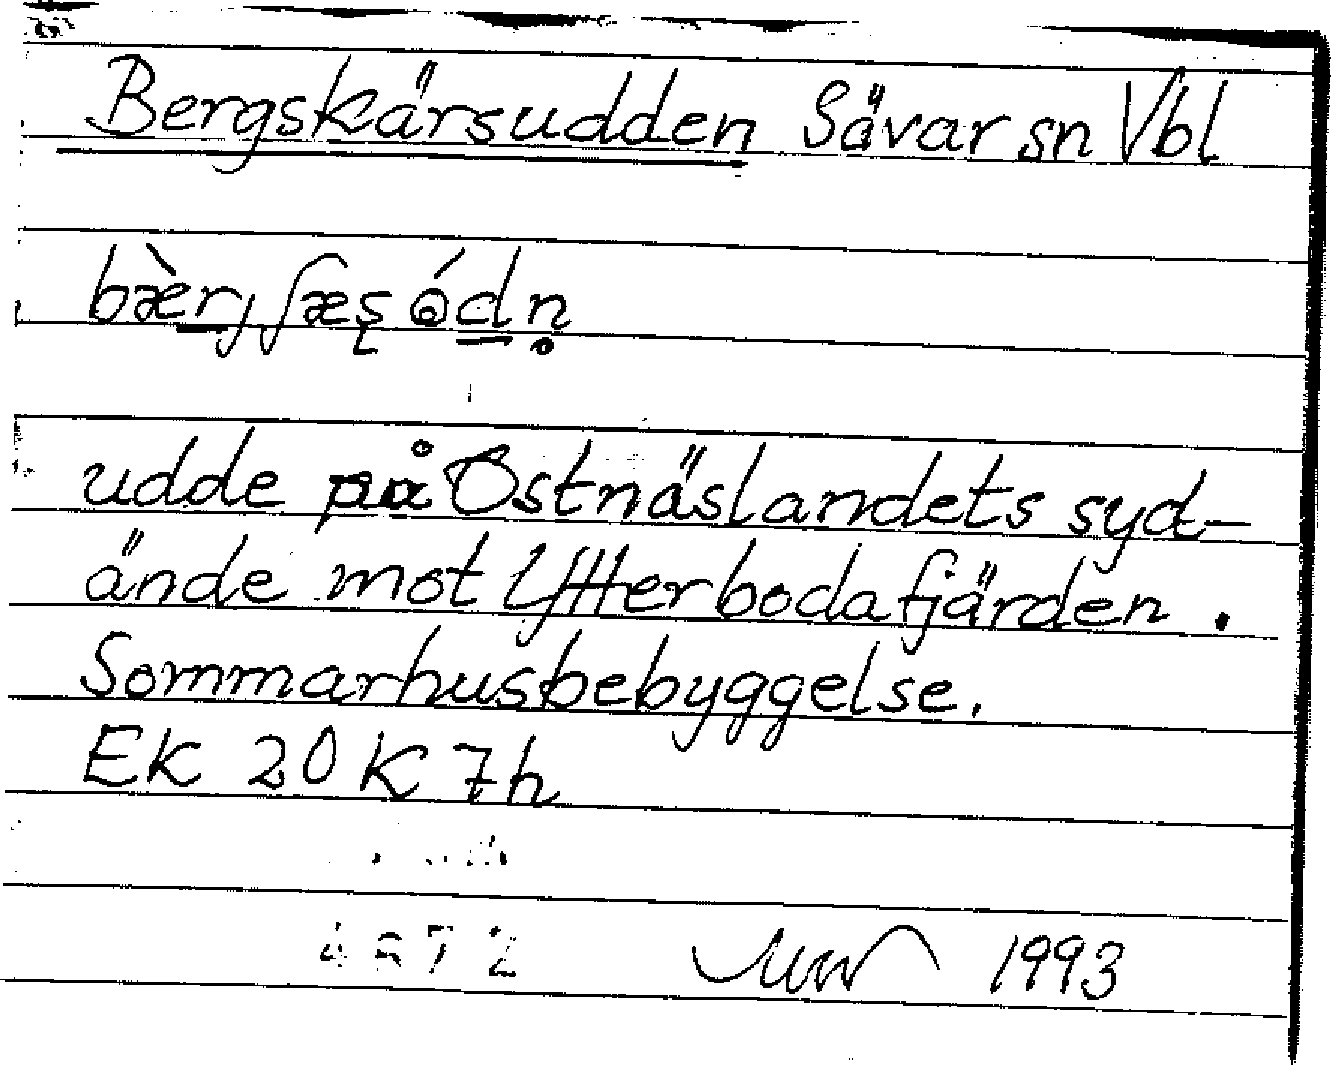 Bergskärsudden Sävar sn Vbl
bæ̀rj ʃæʂ ódn̥
udde på Östnäslandets syd-
ände mot Ytterbodafjärden.
Sommarhusbebyggelse.
EK 20 K 7h
1993